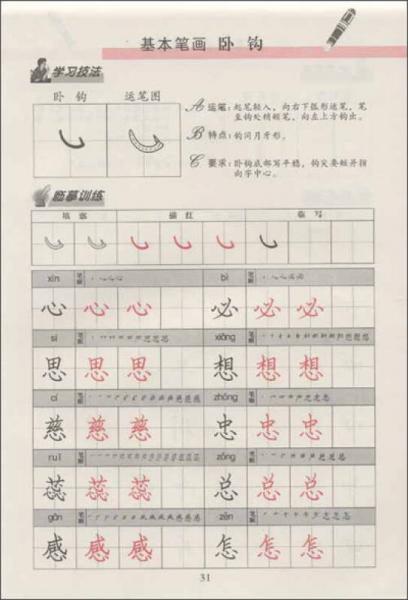 基本笔画 卧 钩
学习技法
卧 钩 运笔图
A 运笔：起笔轻入，向右下弧形运笔，笔
直钩处稍顿笔，向左上方钩出。
B 特点：钩同月牙形。
C 要求：卧钩底部写平稳，钩尖要短并指
向字中心。
临摹训练
描红 临写
xīn 笔顺 bì 笔顺
心 心 心 必 必 必
sī 笔顺 xiǎng 笔顺
思 思 思 想 想 想
cí 笔顺 zhōng 笔顺
慈 慈 慈 忠 忠 忠
ruǐ 笔顺 zǒng 笔顺
蕊 蕊 蕊 总 总 总
gǎn 笔顺 zěn 笔顺
感 感 感 怎 怎 怎
31